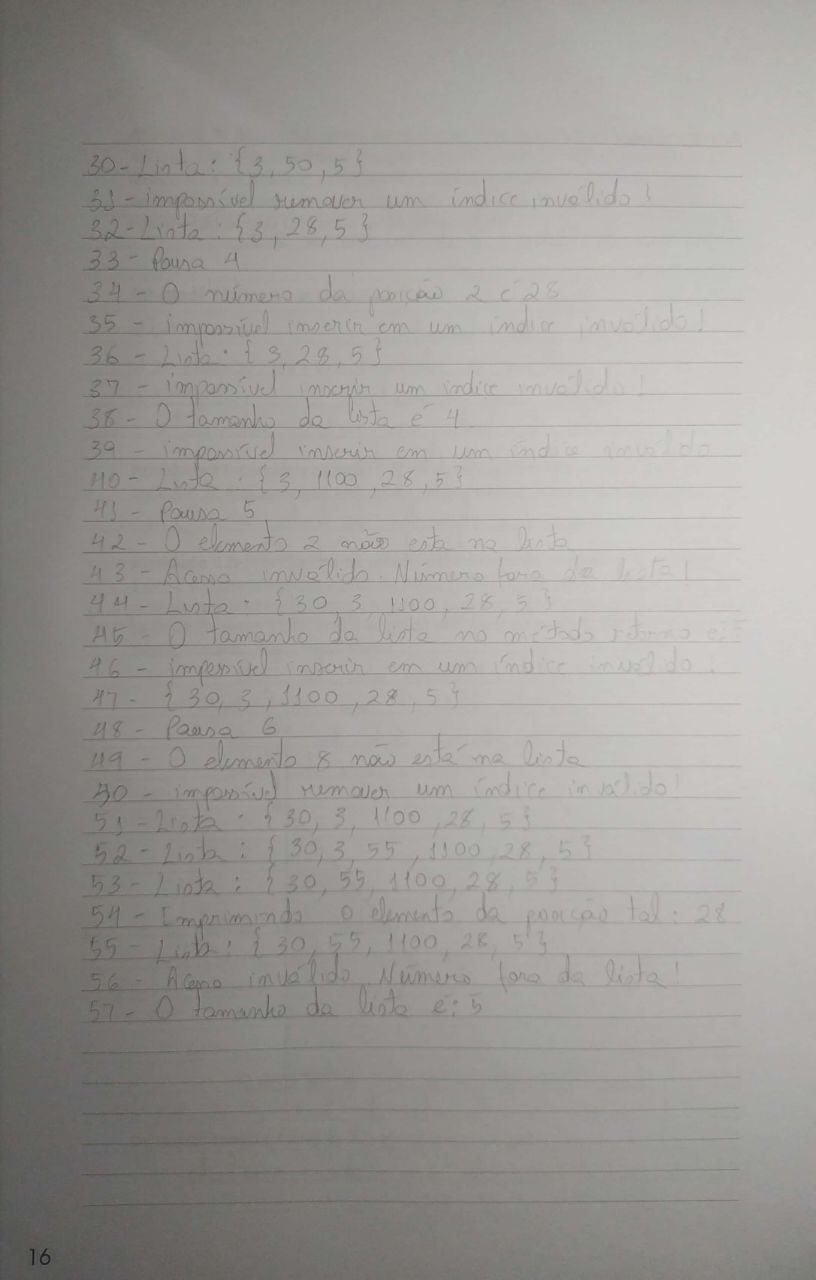 30 - Lista: {3, 50, 5}
31 - impossível remover um índice inválido!
32 - Lista: {3, 28, 5}
33 - Pausa 4
34 - O número da posição 2 é 28
35 - impossível inserir em um índice inválido!
36 - Lista: {3, 28, 5}
37 - impossível inserir um índice inválido!
38 - O tamanho da lista é 4
39 - impossível inserir em um índice inválido
40 - Lista: {3, 1100, 28, 5}
41 - Pausa 5
42 - O elemento 2 não esta na lista
43 - Acesso inválido. Número fora da lista!
44 - Lista: {30, 3, 1100, 28, 5}
45 - O tamanho da lista no método retorno e: 5
46 - impossível inserir em um índice inválido!
47 - {30, 3, 1100, 28, 5}
48 - Pausa 6
49 - O elemento 8 não está na lista
50 - impossível remover um índice inválido!
51 - Lista: {30, 3, 1100, 28, 5}
52 - Lista: {30, 3, 55, 1100, 28, 5}
53 - Lista: {30, 55, 1100, 28, 5}
54 - Imprimindo o elemento da posição tal: 28
55 - Lista: {30, 55, 1100, 28, 5}
56 - Acesso inválido. Número fora da lista!
57 - O tamanho da lista é: 5
16